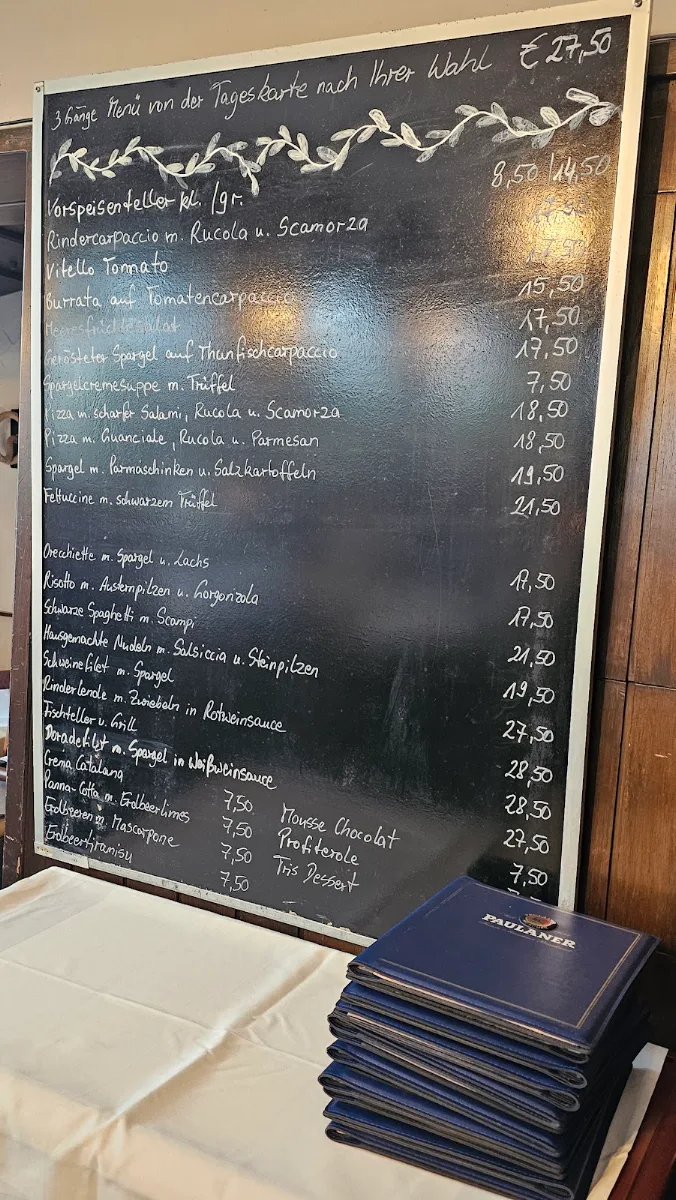 3 Gänge Menü von der Tageskarte nach Ihrer Wahl € 27,50
Vorspeisenteller kl. /gr. 8,50/14,50
Rindercarpaccio m. Rucola u. Scamorza
Vitello Tonnato
Burrata auf Tomatencarpaccio 15,50
Meeresfrüchtesalat 17,50
Gerösteter Spargel auf Thunfischcarpaccio 17,50
Spargelcremesuppe m. Trüffel 7,50
Pizza m. scharfer Salami, Rucola u. Scamorza 18,50
Pizza m. Guanciale, Rucola u. Parmesan 18,50
Spargel m. Parmaschinken u. Salzkartoffeln 19,50
Fettuccine m. schwarzem Trüffel 21,50
Orecchiette m. Spargel u. Lachs 17,50
Risotto m. Austernpilzen u. Gorgonzola 17,50
Schwarze Spaghetti m. Scampi 21,50
Hausgemachte Nudeln m. Salsiccia u. Steinpilzen 19,50
Schweinefilet m. Spargel 27,50
Rinderlende m. Zwiebeln in Rotweinsauce 28,50
Fischteller v. Grill 28,50
Doradefilet m. Spargel in Weißweinsauce 27,50
Crema Catalana 7,50 Mousse Chocolat 7,50
Panna-Cotta m. Erdbeerlimes 7,50 Profiterole
Erdbeeren m. Mascarpone 7,50 Tris Dessert
Erdbeertiramisu 7,50
PAULANER